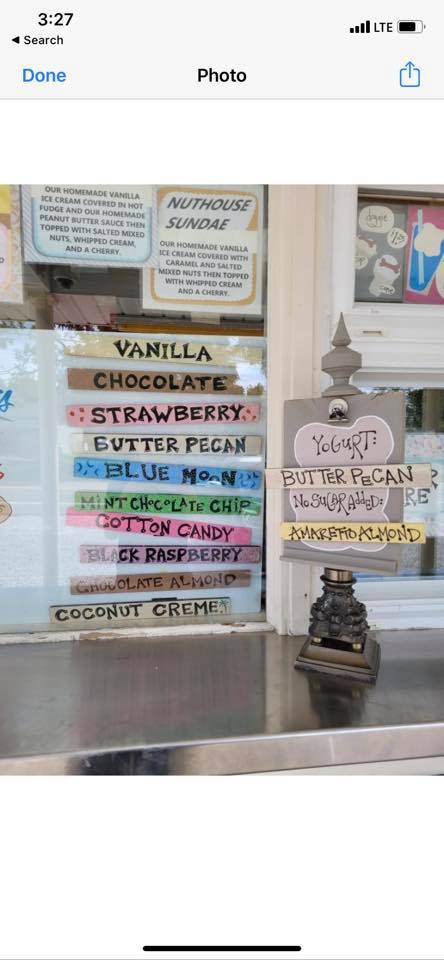 3:27
LTE
Search
Done
Photo
OUR HOMEMADE VANILLA
ICE CREAM COVERED IN HOT
FUDGE AND OUR HOMEMADE
PEANUT BUTTER SAUCE THEN
TOPPED WITH SALTED MIXED
NUTS, WHIPPED CREAM,
AND A CHERRY.
NUTHOUSE
SUNDAE
OUR HOMEMADE VANILLA
ICE CREAM COVERED WITH
CARAMEL AND SALTED
MIXED NUTS THEN TOPPED
WITH WHIPPED CREAM
AND A CHERRY.
doggie
VANILLA
CHOCOLATE
STRAWBERRY
BUTTER PECAN
BLUE MOON
MINT CHOCOLATE CHIP
COTTON CANDY
BLACK RASPBERRY
CHOCOLATE ALMOND
COCONUT CREME
YOGURT:
BUTTER PECAN
NO SUGAR ADDED:
AMARETTO ALMOND
RE